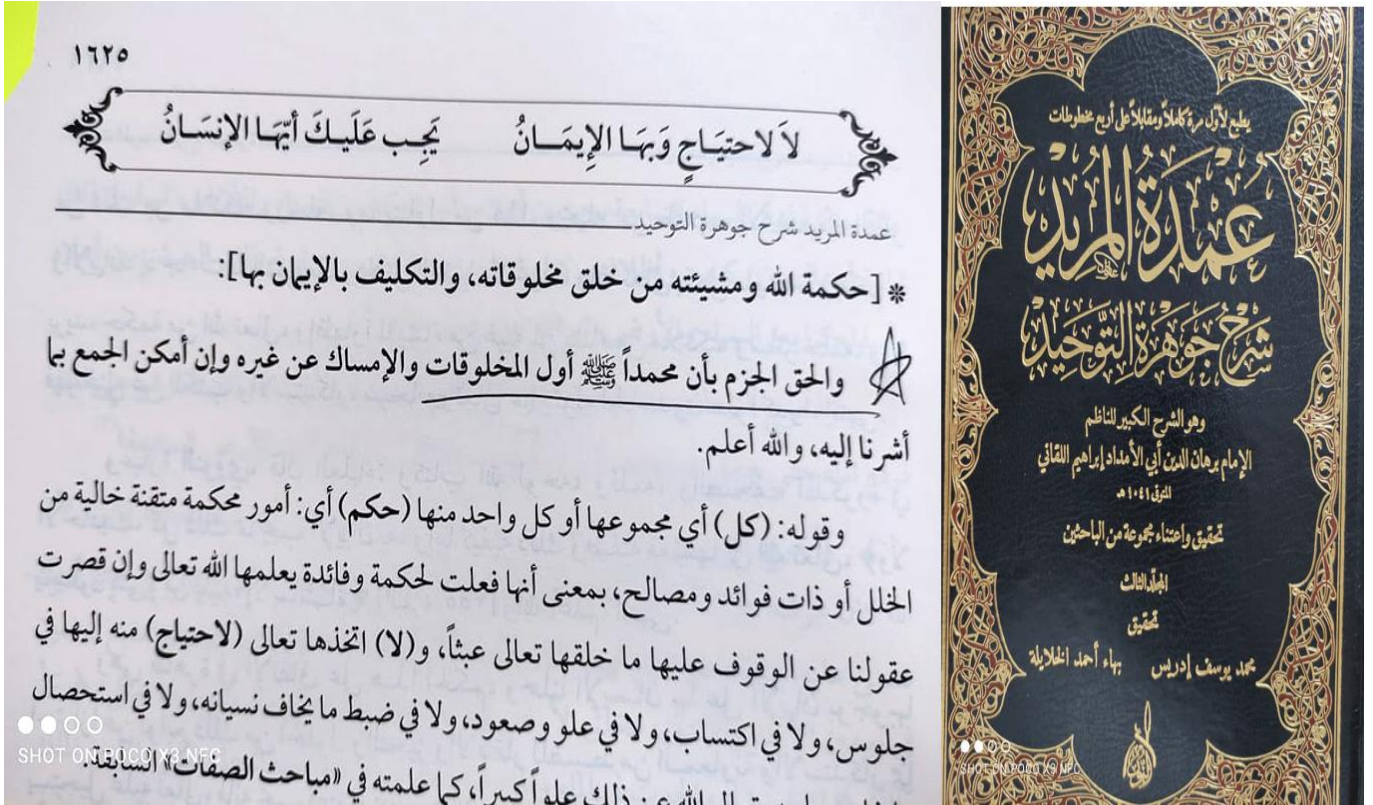 ١٦٢٥
لاَ لاحتيَـاجٍ وَبهَـا الإِيمَــانُ يَجِـب عَلَيـكَ أيّهَـا الإنسَـانُ
عمدة المريد شرح جوهرة التوحيد
* [حكمة الله ومشيئته من خلق مخلوقاته، والتكليف بالإيمان بها]:
والحق الجزم بأن محمداً ﷺ أول المخلوقات والإمساك عن غيره وإن أمكن الجمع بما
أشرنا إليه، والله أعلم.
وقوله: (كل) أي مجموعها أو كل واحد منها (حكم) أي: أمور محكمة متقنة خالية من
الخلل أو ذات فوائد ومصالح، بمعنى أنها فعلت لحكمة وفائدة يعلمها الله تعالى وإن قصرت
عقولنا عن الوقوف عليها ما خلقها تعالى عبثاً، و(لا) اتخذها تعالى (لاحتياج) منه إليها في
جلوس، ولا في اكتساب، ولا في علو وصعود، ولا في ضبط ما يخاف نسيانه، ولا في استحصال
الله عن ذلك علواً كبيراً، كما علمته في «مباحث الصفات» السابقة
SHOT ON POCO X3 NFC
يطبع لأول مرة كاملاً ومقابلاً على أربع مخطوطات
عُمْدَةُ المُرِيدِ
شَرْحُ جَوْهَرَةِ التَّوْحِيدِ
وهو الشرح الكبير للناظم
الإمام برهان الدين أبي الأمداد إبراهيم اللقاني
المتوفى ١٠٤١ هـ
تحقيق واعتناء مجموعة من الباحثين
المجلد الثالث
تحقيق
محمد يوسف إدريس بهاء أحمد الخلايلة
SHOT ON POCO X3 NFC